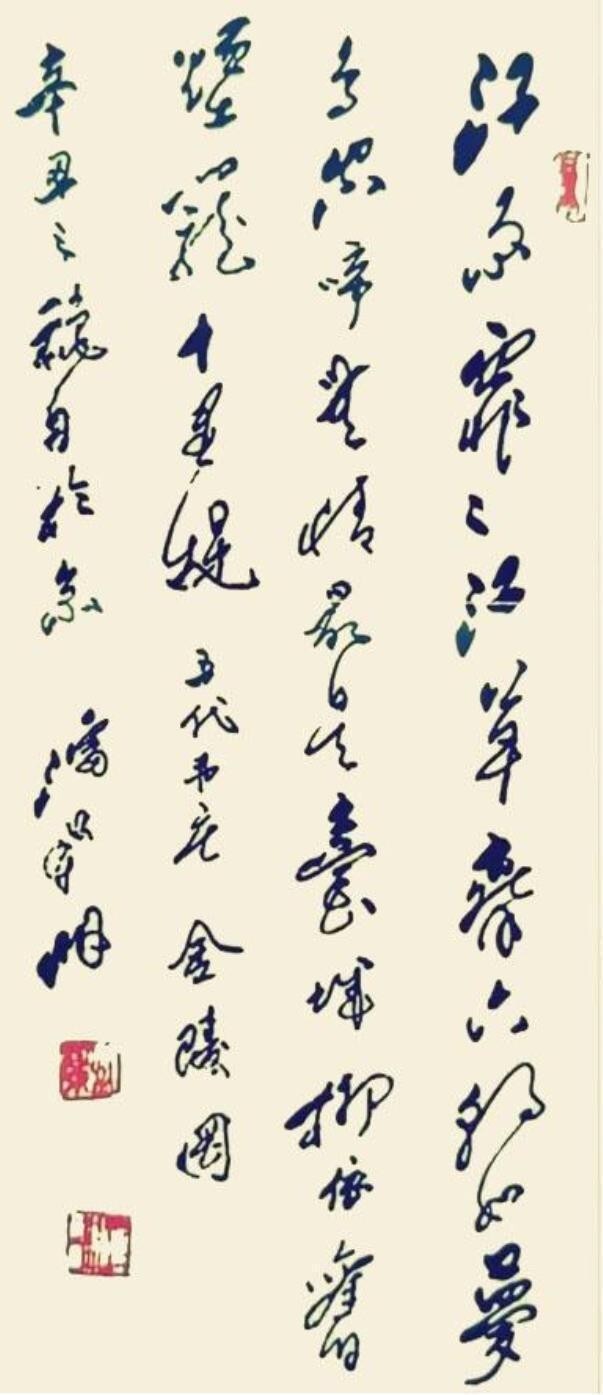 江雨霏々江草齊六朝如夢
鳥空啼無情最是臺城柳依舊
煙籠十里堤 五代韋莊 金陵圖
辛丑之秋月於京 潘世明